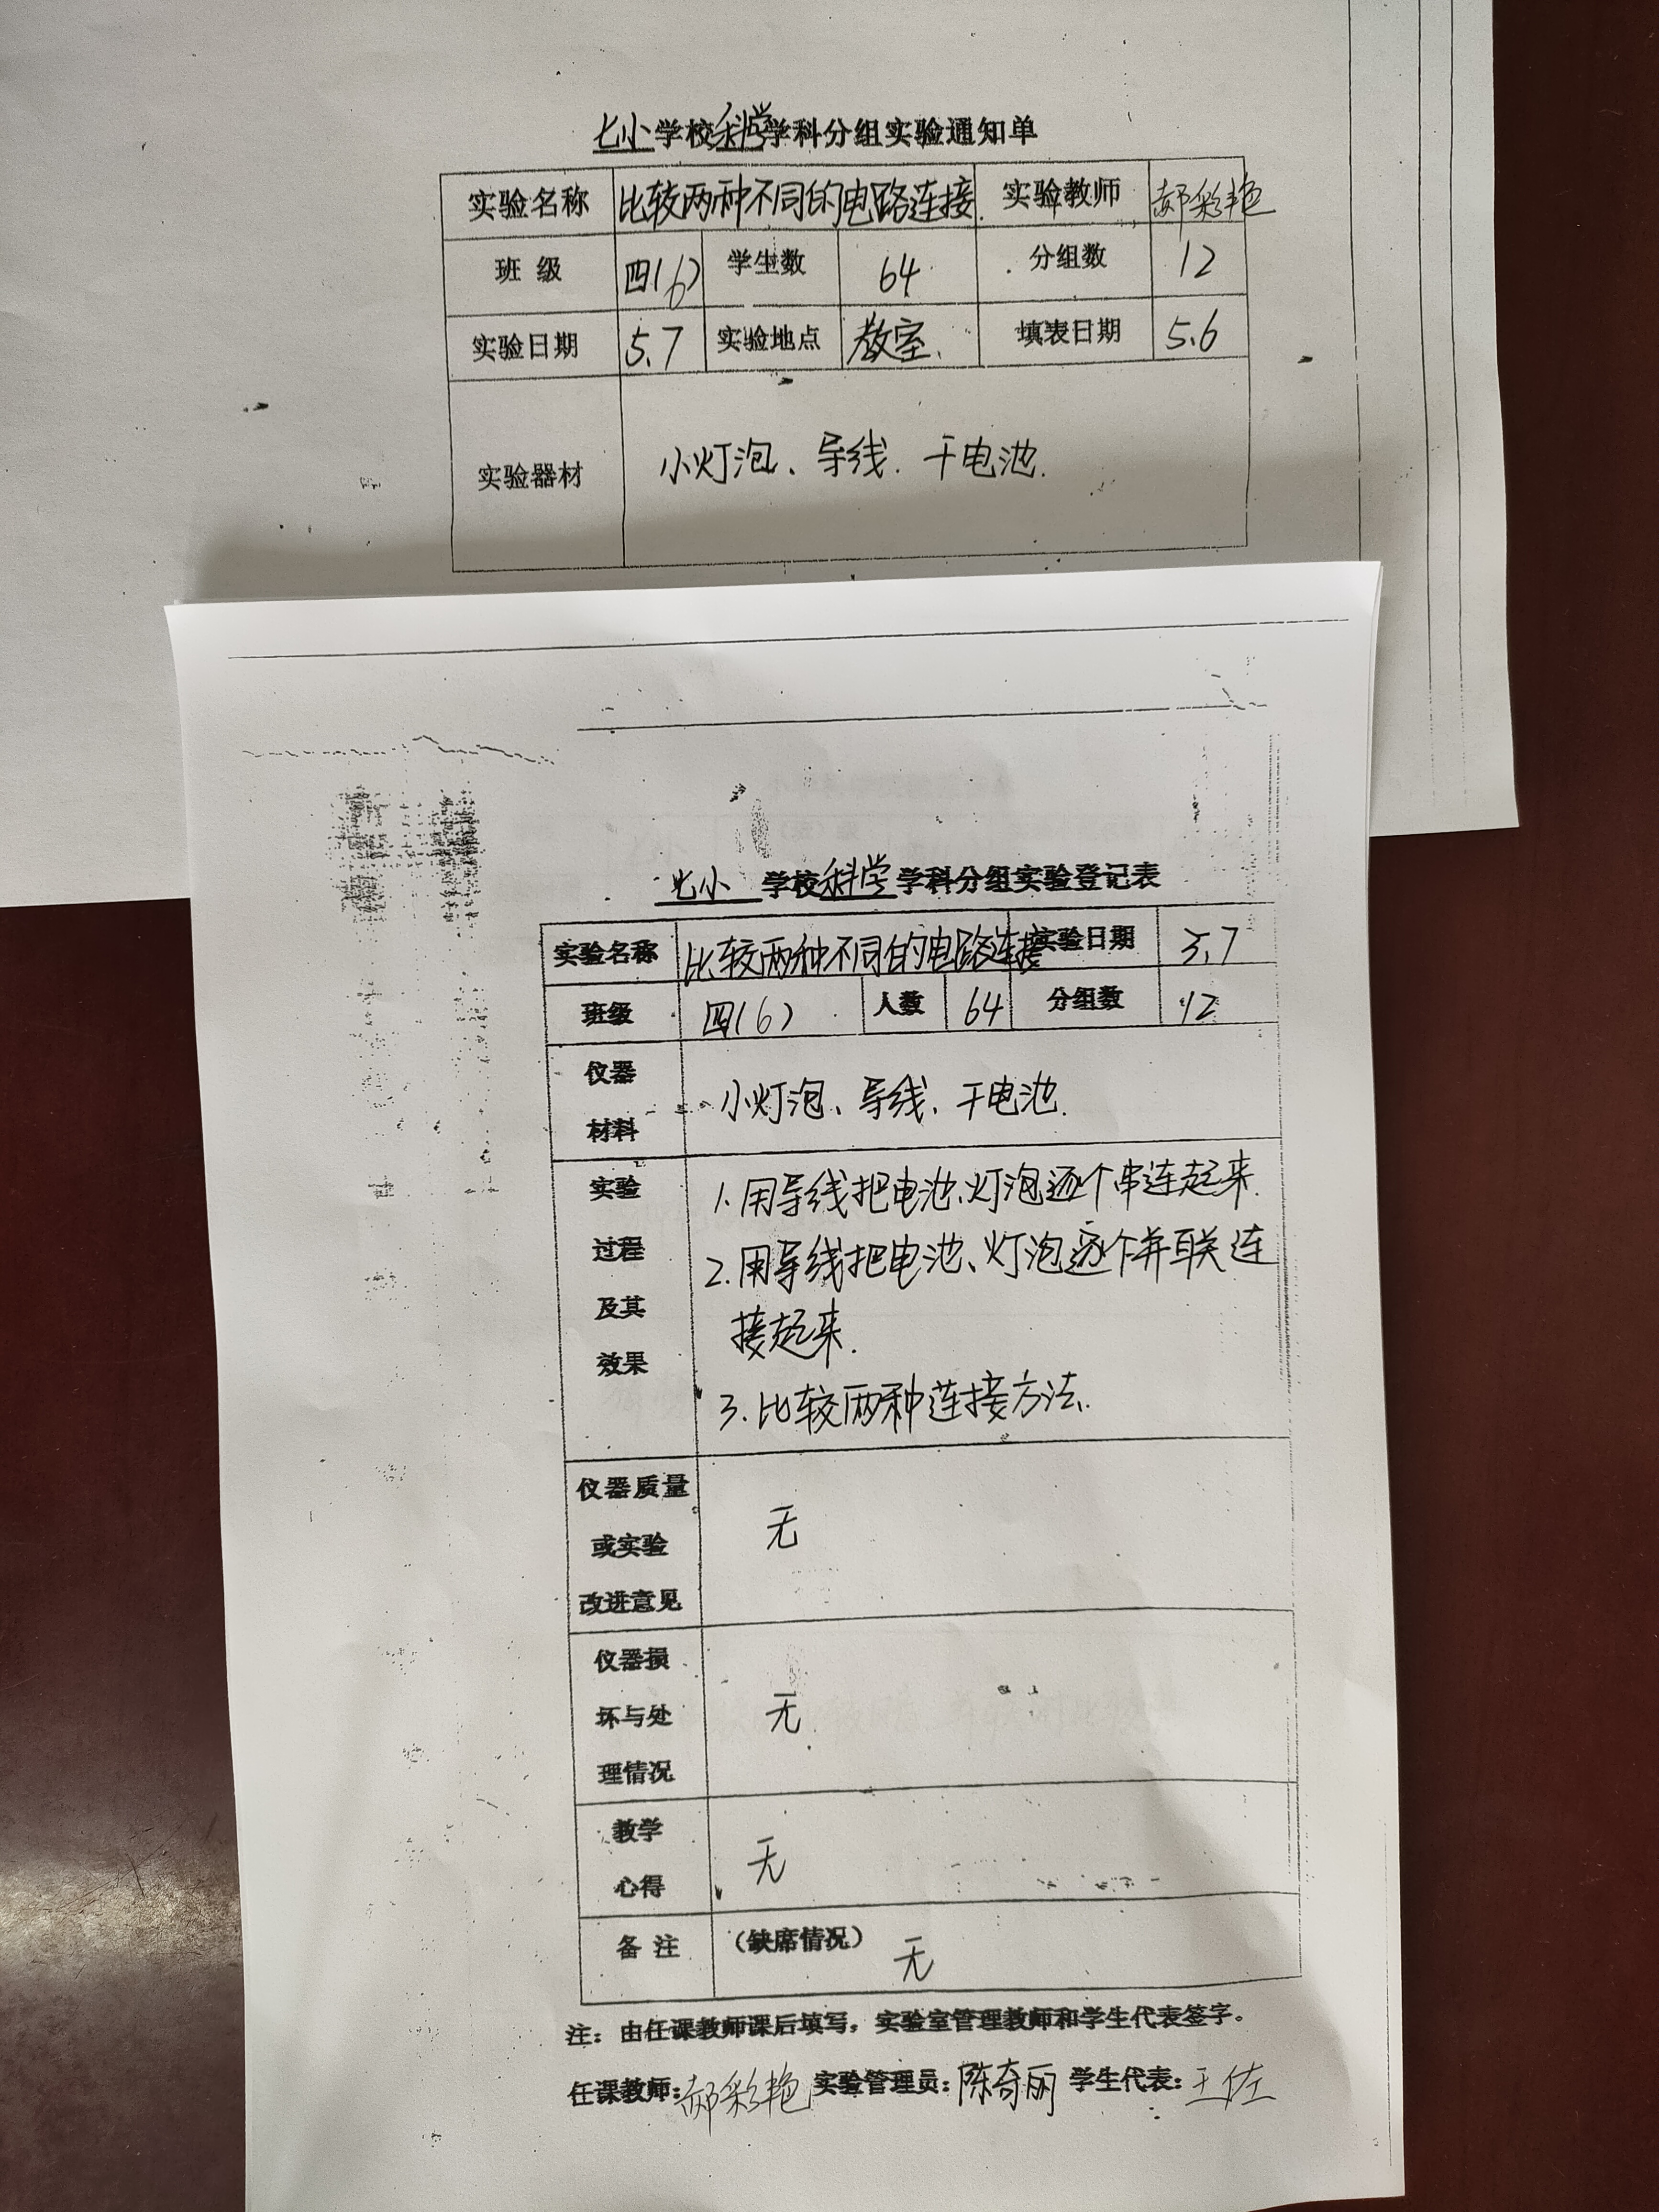 七小学校科学学科分组实验通知单
实验名称 比较两种不同的电路连接 实验教师 郝彩艳
班级 四(6) 学生数 64 分组数 12
实验日期 5.7 实验地点 教室. 填表日期 5.6
实验器材 小灯泡、导线.干电池.
七小 学校科学学科分组实验登记表
实验名称 比较两种不同的电路连接 实验日期 5.7
班级 四(6) 人数 64 分组数 12
仪器
材料
小灯泡、导线、干电池.
实验
过程
及其
效果
1.用导线把电池、灯泡逐个串连起来.
2.用导线把电池、灯泡逐个并联连
接起来.
3.比较两种连接方法.
仪器质量
或实验
改进意见
无
仪器损
坏与处
理情况
无
教学
心得
无
备注 (缺席情况) 无
注：由任课教师课后填写，实验室管理教师和学生代表签字。
任课教师:郝彩艳 实验管理员:陈奇丽 学生代表:王佐